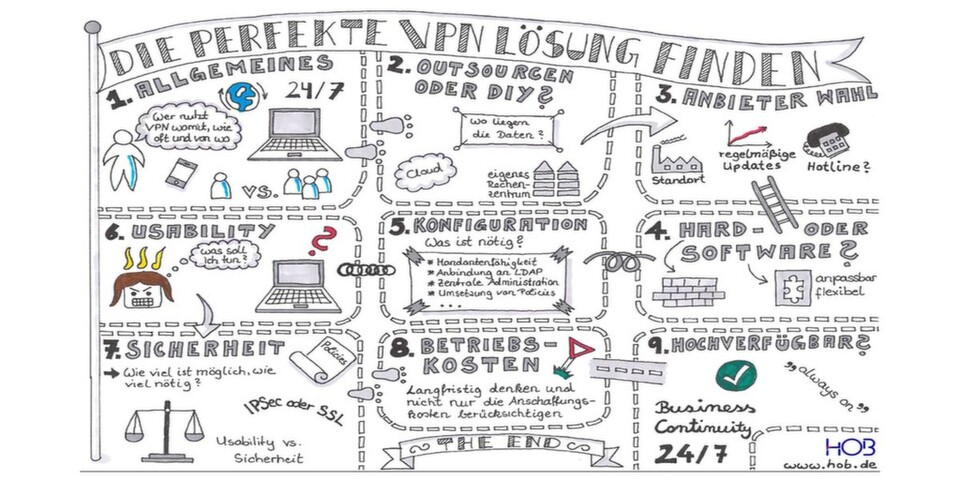 DIE PERFEKTE VPN LÖSUNG FINDEN
1. ALLGEMEINES
24/7
Wer nutzt
VPN womit, wie
oft und von wo
VS.
2. OUTSOURCEN
ODER DIY?
Wo liegen
die Daten?
Cloud
eigenes
Rechen-
zentrum
3. ANBIETER WAHL
Standort
regelmäßige
Updates
Hotline?
4. HARD- ODER
SOFTWARE?
anpassbar
flexibel
5. KONFIGURATION
Was ist nötig?
* Mandantenfähigkeit
* Anbindung an LDAP
* Zentrale Administration
* Umsetzung von Policies
...
6. USABILITY
was soll
ich tun?
?
7. SICHERHEIT
Policies
→ Wie viel ist möglich, wie
viel nötig?
IPSec oder SSL
Usability vs.
Sicherheit
8. BETRIEBS-
KOSTEN
Langfristig denken und
nicht nur die Anschaffungs-
kosten berücksichtigen
9. HOCHVERFÜGBAR?
"always on"
Business
Continuity
24/7
THE END
HOB
www.hob.de